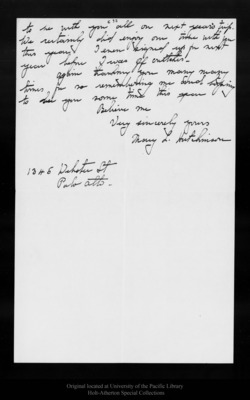 to be with you all on next year's trip.
We certainly did enjoy our time with you
this year. I even signed up for next
year before I was
Again thanking you many many
times for so remembering me and hoping
to see you some time this
Believe me
Very sincerely yours
Mary L. Hutchinson
1345 Webster St
Palo Alto.
Original located at University of the Pacific Library
Holt-Atherton Special Collections